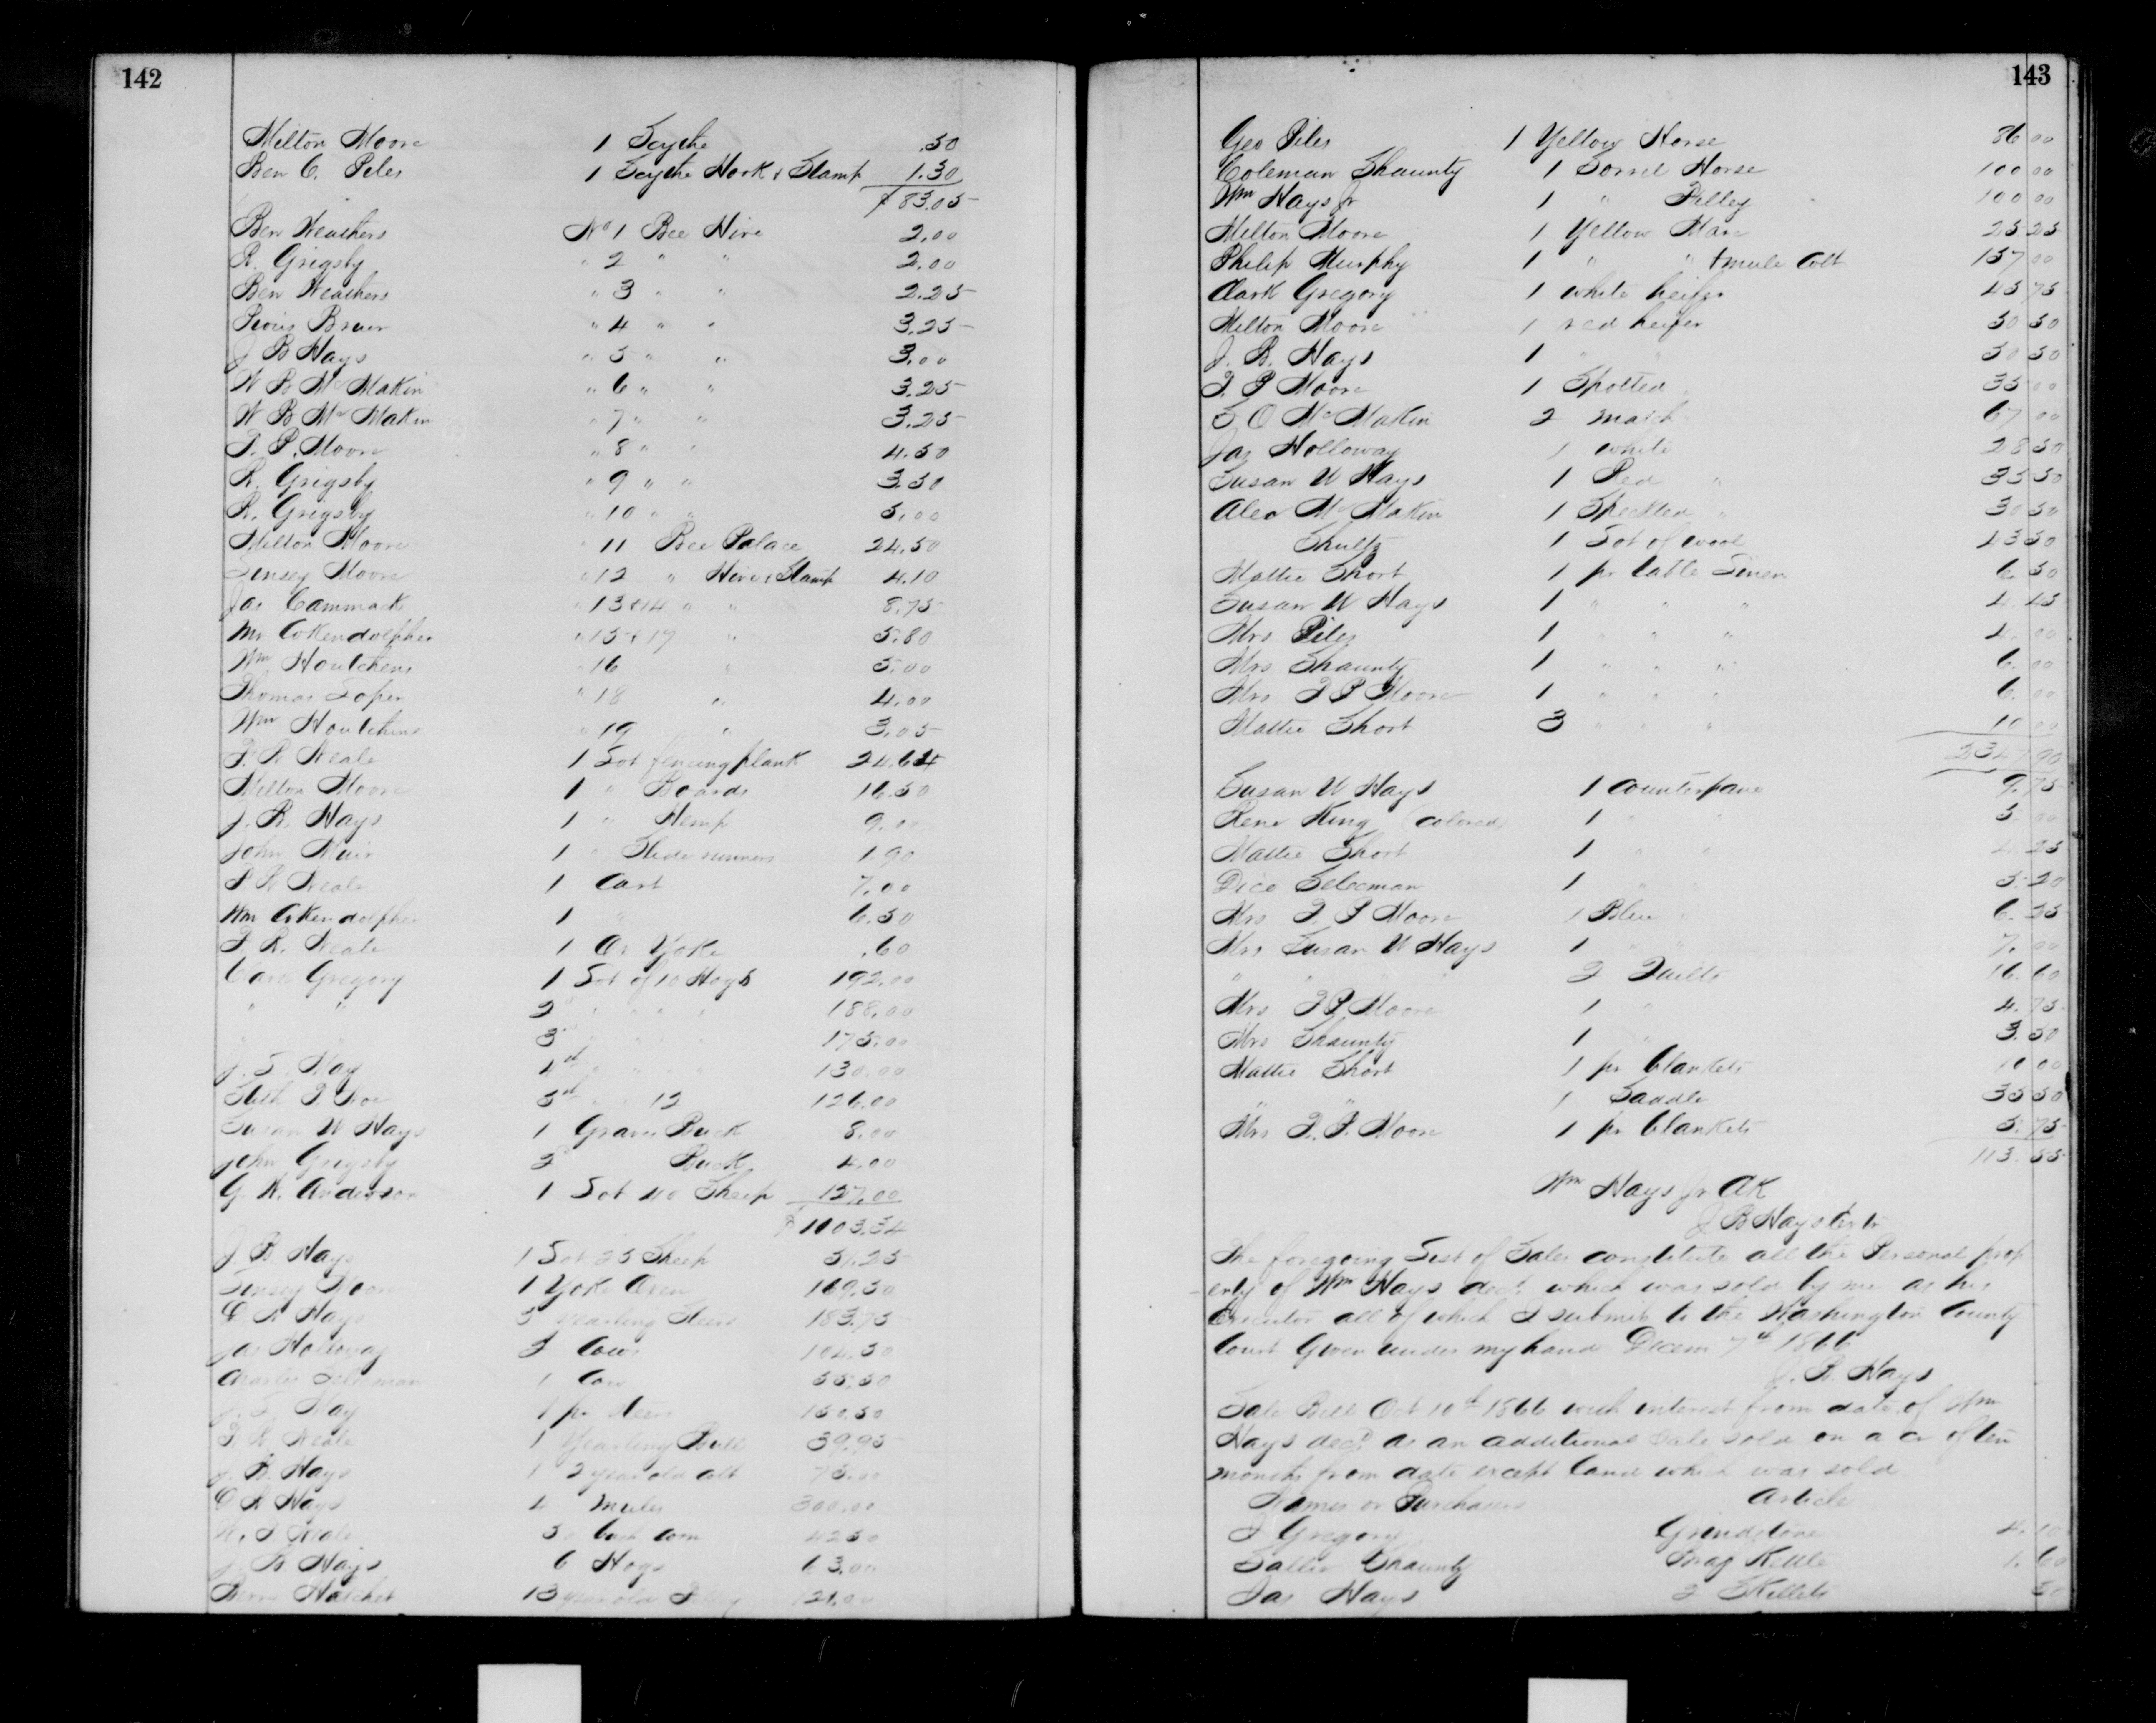 142
Milton Moore 1 Scythe .50
Ben C. Piles 1 Scythe Hook & Stamp 1.30
$83.05
Ben Weathers No 1 Bee Hive 2.00
R. Grigsby " 2 " " 2.00
Ben Weathers " 3 " " 2.25
Bruer " 4 " " 3.25
J B Hays " 5 " " 3.00
W B McMakin " 6 " " 3.25
W B McMakin " 7 " " 3.25
T. P. Moore " 8 " " 4.50
R. Grigsby " 9 " " 3.50
R. Grigsby " 10 " " 5.00
Milton Moore " 11 Bee Palace 24.50
Linsey Moore " 12 " Hive & Stamp 4.10
Jas Cammack " 13 & 14 " " 8.75
Mr Cokendolpher " 15 & 17 " 5.80
Wm Houtchens " 16 " 5.00
Thomas Soper " 18 " 4.00
Wm Houtchens " 19 " 3.05
T. R Neale 1 Lot fencing plank 24.64
Milton Moore 1 " Boards 16.50
J. B. Hays 1 " Hemp 9.00
John Muir 1 " Slide runners 1.90
T R Neale 1 Cart 7.00
Wm Cokendolpher 1 " 6.50
T. R. Neale 1 Ox Yoke .60
Clark Gregory 1 Lot of 10 Hogs 192.00
" " 2d " " " " 188.00
3d " " " 175.00
J. S. May 4th " " " 130.00
5th " " 12 126.00
Susan W Hays 1 Graves Buck 8.00
John Grigsby 2d Buck 4.00
G. W. Anderson 1 Lot 40 Sheep 127.00
$1103.34
J B. Hays 1 Lot 25 Sheep 51.25
Linsey Moore 1 Yoke Oxen 169.50
Hays 5 Yearling Steers 183.75
Jas Holloway 3 Cows 104.50
Selecman 1 Cow 55.50
J. S. May 1 pr Steers 150.50
T. R. Neale 1 Yearling Bull 39.95
J. B. Hays 1 2 year old colt 75.00
Hays 4 Mules 300.00
Neale 50 Corn 42.50
J. B. Hays 6 Hogs 63.00
Hatchet 1 3 year old 121.00
143
Geo Piles 1 Yellow Horse 86 00
Coleman Shaunty 1 Sorrel Horse 100 00
Wm Hays Jr 1 " Filley 100 00
Milton Moore 1 Yellow Mare 25 25
Philip Murphy 1 " " & mule Colt 157 00
Clark Gregory 1 white heifer 45 75
Milton Moore 1 red heifer 50 50
J. B. Hays 1 " " 50 50
T. P Moore 1 Spotted " 35 00
S O McMakin 2 match 67 00
Jas Holloway 1 white 28 50
Susan W Hays 1 Red " 35 50
Alex McMakin 1 Speckled " 30 50
Shultz 1 Lot of wool 43 50
Mattie Short 1 pr table Linen 6. 50
Susan W Hays 1 " " " 4. 45
Mrs Piles 1 " " " 4. 00
Mrs Shaunty 1 " " " 6. 00
Mrs T P Moore 1 " " " 6. 00
Mattie Short 3 " " " 10 00
2347 90
Susan W Hays 1 Counterpane 9. 75
Rene King (colored) 1 " " 5. 00
Mattie Short 1 " " 4. 25
Dico Selecman 1 " " 5. 20
Mrs T. P Moore 1 Blue " 6. 25
Mrs Susan W Hays 1 " " 7. 00
" " " 2 Quilts 16. 60
Mrs T P Moore 1 " 4. 75
Mrs Shaunty 1 " 3. 50
Mattie Short 1 pr blankets 10 00
" " 1 Saddle 35 50
Mrs T. P. Moore 1 pr blankets 5. 75
113. 55
Wm Hays Jr Clk
J B Hays Extr
The foregoing List of Sales constitute all the Personal prop
erty of Wm Hays decd. which was sold by me as his
Executor all of which I submit to the Washington County
Court Given under my hand Decem 7th 1866
J. B. Hays
Sale Bill Oct 10th 1866 with interest from date of Wm
Hays decd. as an additional Sale sold on a cr of ten
months from date except land which was sold
Names of Purchasers Article
J Gregory Grindstone 4. 10
Sallie Shaunty Kettle 1. 60
Jas Hays 2 Skillets 50